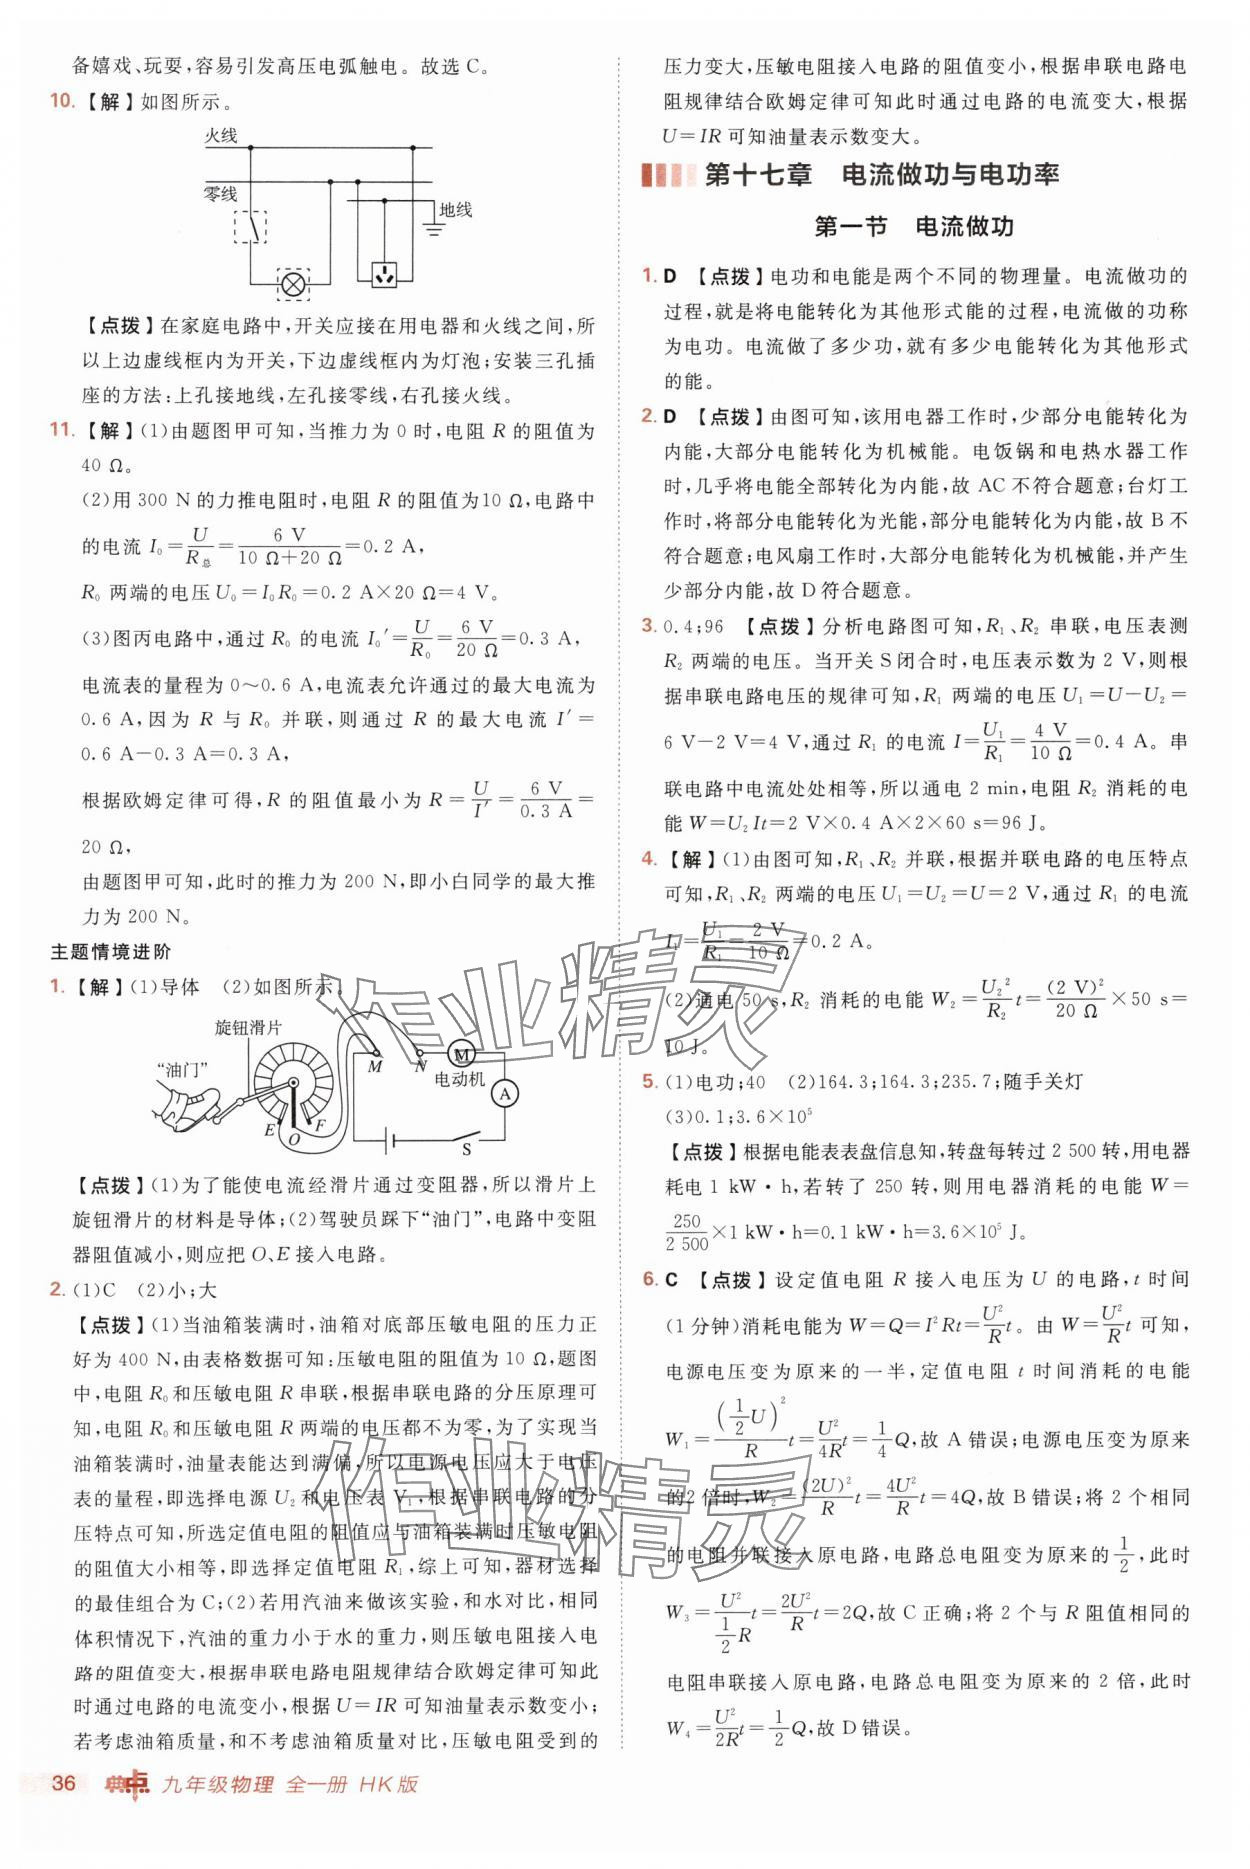 备嬉戏、玩耍,容易引发高压电弧触电。故选 C。
10.【解】如图所示。
火线
零线
地线
【点拨】在家庭电路中,开关应接在用电器和火线之间,所
以上边虚线框内为开关,下边虚线框内为灯泡;安装三孔插
座的方法:上孔接地线,左孔接零线,右孔接火线。
11.【解】(1)由题图甲可知,当推力为 0 时,电阻 R 的阻值为
40 Ω。
(2)用 300 N 的力推电阻时,电阻 R 的阻值为10 Ω,电路中
的电流 I₀=U/R总=6 V/(10 Ω+20 Ω)=0.2 A,
R₀ 两端的电压 U₀=I₀R₀=0.2 A×20 Ω=4 V。
(3)图丙电路中,通过 R₀ 的电流 I₀′=U/R₀=6 V/20 Ω=0.3 A,
电流表的量程为 0～0.6 A,电流表允许通过的最大电流为
0.6 A,因为 R 与 R₀ 并联,则通过 R 的最大电流 I′=
0.6 A－0.3 A=0.3 A,
根据欧姆定律可得,R 的阻值最小为 R=U/I′=6 V/0.3 A=
20 Ω,
由题图甲可知,此时的推力为 200 N,即小白同学的最大推
力为 200 N。
主题情境进阶
1.【解】(1)导体 (2)如图所示。
旋钮滑片
“油门”
M N M
电动机
A
E O F
S
【点拨】(1)为了能使电流经滑片通过变阻器,所以滑片上
旋钮滑片的材料是导体;(2)驾驶员踩下“油门”,电路中变阻
器阻值减小,则应把 O、E 接入电路。
2. (1)C (2)小;大
【点拨】(1)当油箱装满时,油箱对底部压敏电阻的压力正
好为 400 N,由表格数据可知:压敏电阻的阻值为 10 Ω,题图
中,电阻 R₀和压敏电阻 R 串联,根据串联电路的分压原理可
知,电阻 R₀和压敏电阻 R 两端的电压都不为零,为了实现当
油箱装满时,油量表能达到满偏,所以电源电压应大于电压
表的量程,即选择电源 U₂ 和电压表 V₁,根据串联电路的分
压特点可知,所选定值电阻的阻值应与油箱装满时压敏电阻
的阻值大小相等,即选择定值电阻 R₁,综上可知,器材选择
的最佳组合为 C;(2)若用汽油来做该实验,和水对比,相同
体积情况下,汽油的重力小于水的重力,则压敏电阻接入电
路的阻值变大,根据串联电路电阻规律结合欧姆定律可知此
时通过电路的电流变小,根据 U=IR 可知油量表示数变小;
若考虑油箱质量,和不考虑油箱质量对比,压敏电阻受到的
压力变大,压敏电阻接入电路的阻值变小,根据串联电路电
阻规律结合欧姆定律可知此时通过电路的电流变大,根据
U=IR 可知油量表示数变大。
第十七章 电流做功与电功率
第一节 电流做功
1. D 【点拨】电功和电能是两个不同的物理量。电流做功的
过程,就是将电能转化为其他形式能的过程,电流做的功称
为电功。电流做了多少功,就有多少电能转化为其他形式
的能。
2. D 【点拨】由图可知,该用电器工作时,少部分电能转化为
内能,大部分电能转化为机械能。电饭锅和电热水器工作
时,几乎将电能全部转化为内能,故 AC 不符合题意;台灯工
作时,将部分电能转化为光能,部分电能转化为内能,故 B 不
符合题意;电风扇工作时,大部分电能转化为机械能,并产生
少部分内能,故 D 符合题意。
3. 0.4;96 【点拨】分析电路图可知,R₁、R₂ 串联,电压表测
R₂ 两端的电压。当开关 S闭合时,电压表示数为 2 V,则根
据串联电路电压的规律可知,R₁ 两端的电压 U₁=U－U₂=
6 V－2 V=4 V,通过 R₁ 的电流 I=U₁/R₁=4 V/10 Ω=0.4 A。串
联电路中电流处处相等,所以通电 2 min,电阻 R₂ 消耗的电
能 W=U₂It=2 V×0.4 A×2×60 s=96 J。
4.【解】(1)由图可知,R₁、R₂ 并联,根据并联电路的电压特点
可知,R₁、R₂ 两端的电压 U₁=U₂=U=2 V,通过 R₁ 的电流
I₁=U₁/R₁=2 V/10 Ω=0.2 A。
(2)通电 50 s,R₂ 消耗的电能 W₂=U₂²/R₂ t=(2 V)²/20 Ω×50 s=
10 J。
5. (1)电功;40 (2)164.3;164.3;235.7;随手关灯
(3)0.1;3.6×10⁵
【点拨】根据电能表表盘信息知,转盘每转过 2 500 转,用电器
耗电 1 kW·h,若转了 250 转,则用电器消耗的电能 W=
250/2 500×1 kW·h=0.1 kW·h=3.6×10⁵ J。
6. C 【点拨】设定值电阻 R 接入电压为 U 的电路,t 时间
(1 分钟)消耗电能为 W=Q=I²Rt=U²/R t。由 W=U²/R t 可知,
电源电压变为原来的一半,定值电阻 t 时间消耗的电能
W₁=(1/2 U)²/R t=U²/4R t=1/4 Q,故 A 错误;电源电压变为原来
的2 倍时,W₂=(2U)²/R t=4U²/R t=4Q,故 B 错误;将 2 个相同
的电阻并联接入原电路,电路总电阻变为原来的1/2,此时
W₃=U²/(1/2 R) t=2U²/R t=2Q,故 C 正确;将 2 个与 R 阻值相同的
电阻串联接入原电路,电路总电阻变为原来的 2 倍,此时
W₄=U²/2R t=1/2 Q,故 D 错误。
作业精灵
作业精灵
36 典中点 九年级物理 全一册 HK版